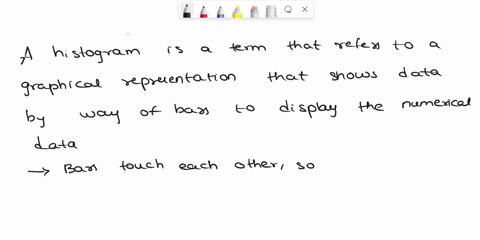 A histogram is a term that refers to a
graphical representation that shows data
by way of bars to display the numerical
data
→ Bars touch each other, so